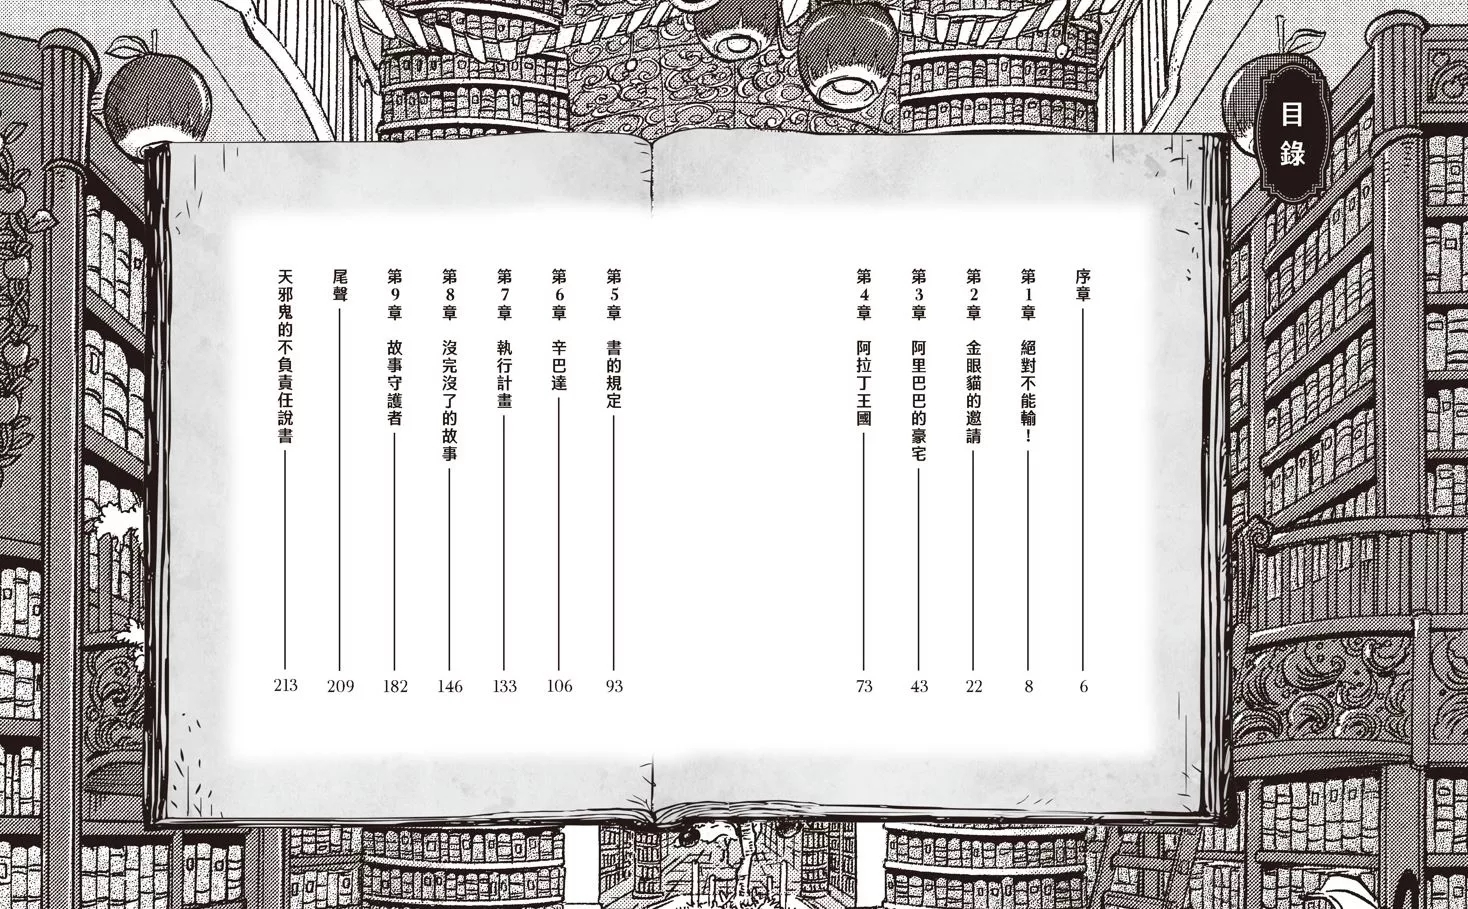 目錄
序章 6
第1章 絕對不能輸！ 8
第2章 金眼貓的邀請 22
第3章 阿里巴巴的豪宅 43
第4章 阿拉丁王國 73
第5章 書的規定 93
第6章 辛巴達 106
第7章 執行計畫 133
第8章 沒完沒了的故事 146
第9章 故事守護者 182
尾聲 209
天邪鬼的不負責任說書 213